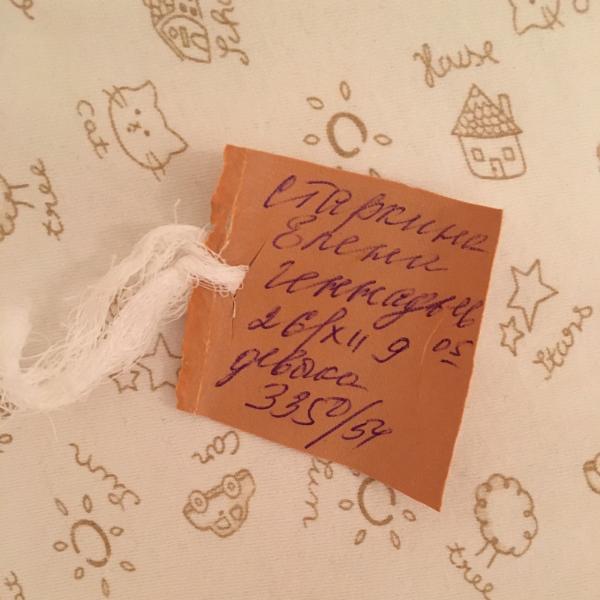 House
Cat
tree
Старкина
Елена
Геннадьев
26/XII 9 05
девочка
3350/54
Stars
Car
Sun
Sun
tree